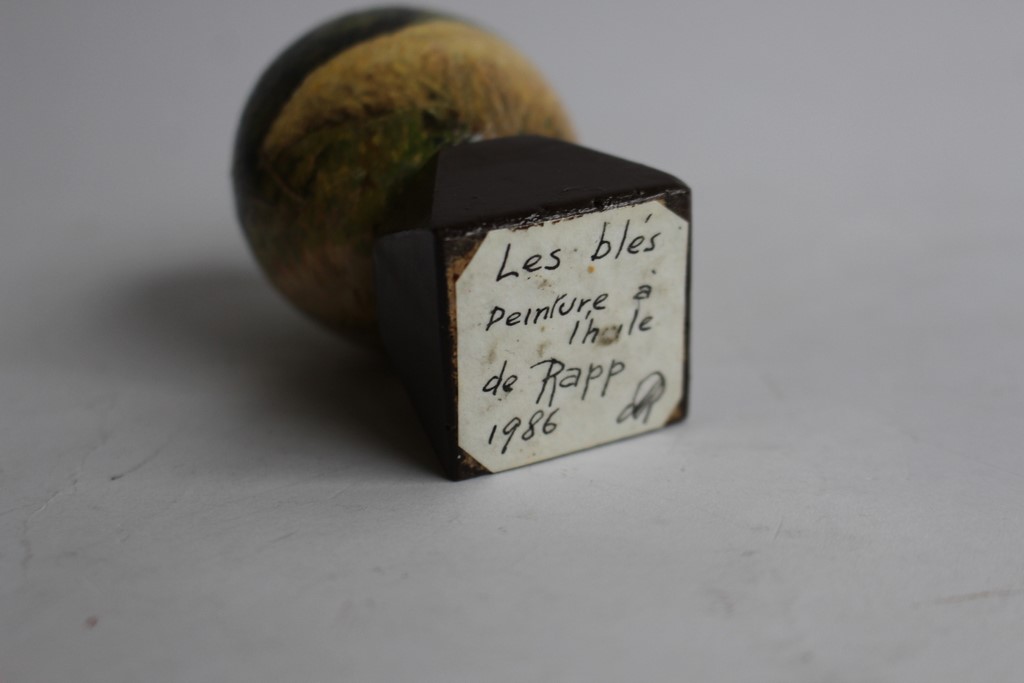 Les blés
peinture à
lhuile
de Rapp
1986 dR